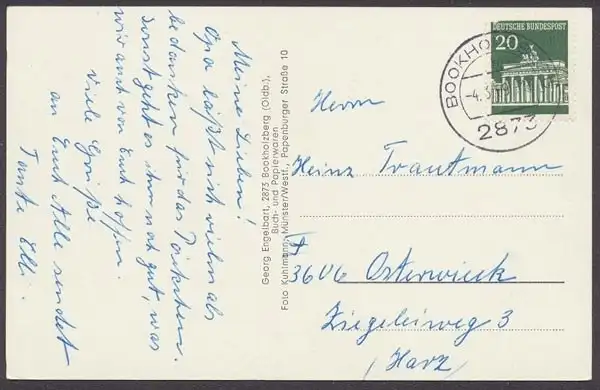 Meine Lieben!
Opa läßt sich vielmals
bedanken für das Päckchen.
Sonst geht es ihm noch gut, was
wir auch von Euch hoffen.
Viele Grüße
an Euch Alle sendet
Tante Elli.
Georg Engelbart, 2875 Bookholzberg (Oldb.),
Buch- und Papierwaren
Foto Kuhlmann, Münster/Westf., Papenburger Straße 10
DEUTSCHE BUNDESPOST
20
BOOKHO
-4.3
2873
Herrn
Heinz Trautmann
3606 Osterwieck
Ziegeleiweg 3
/Harz/